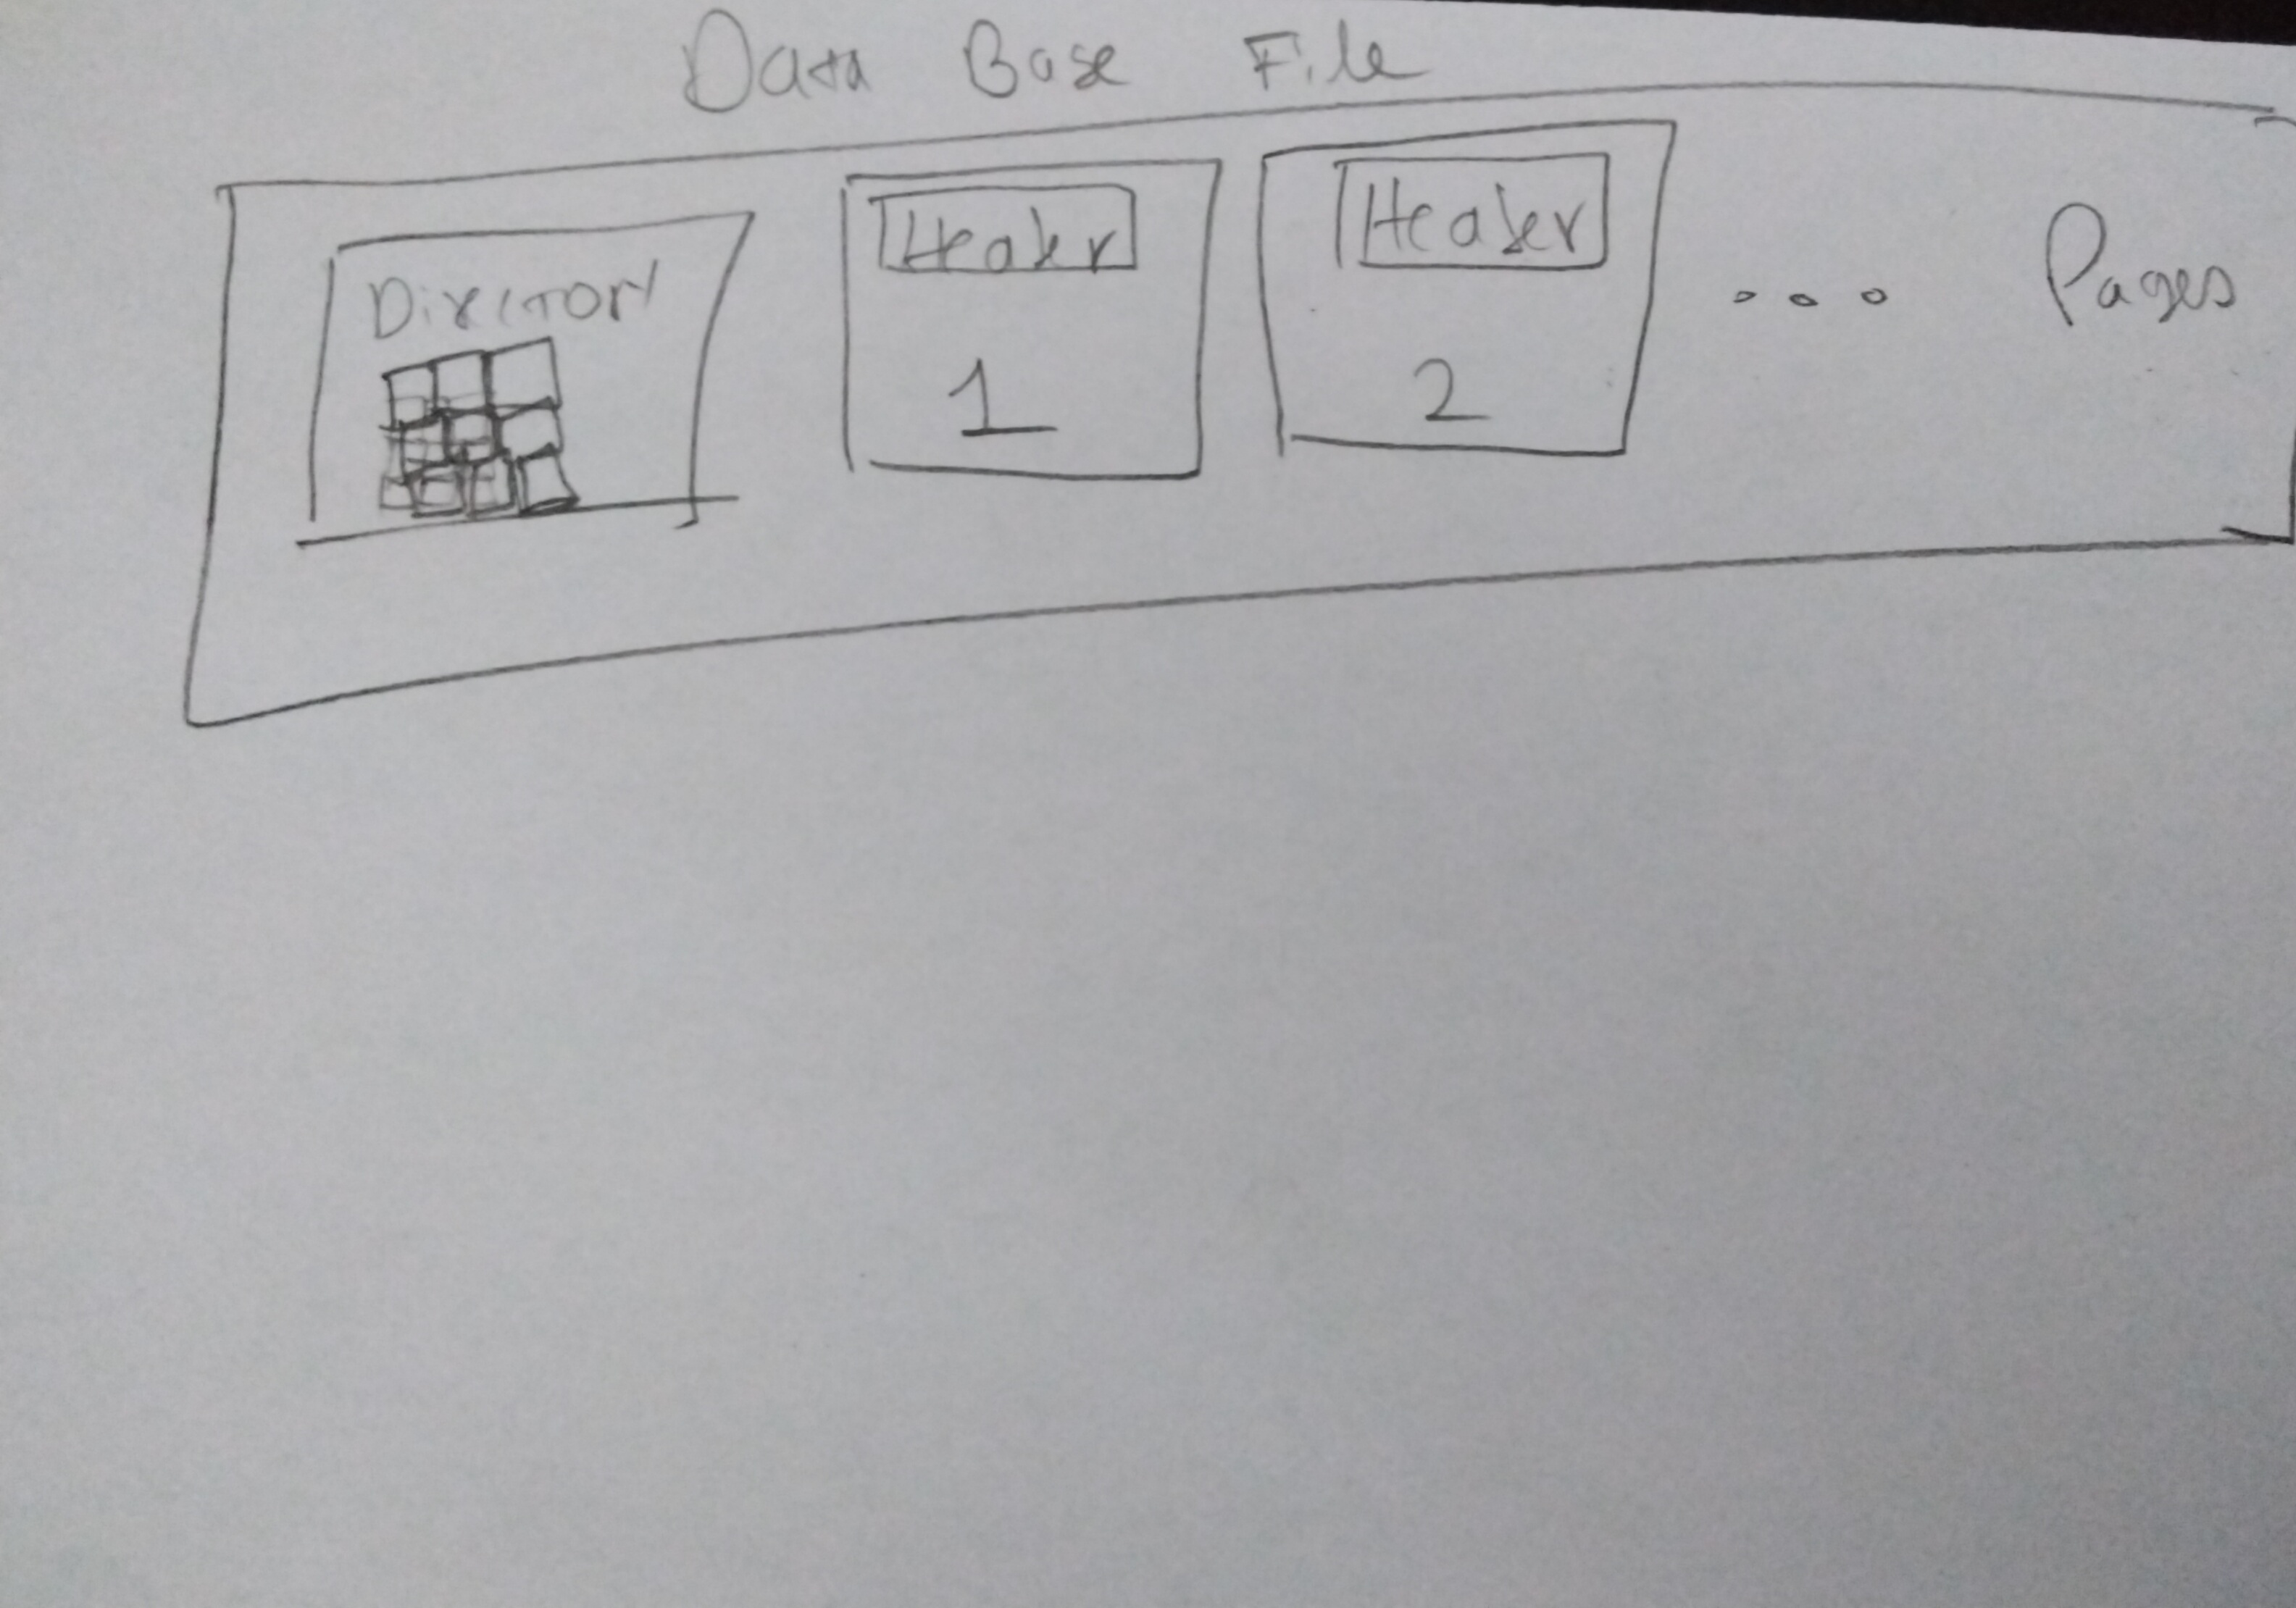 Data Base File
Directory
Header
1
Header
2
... Pages